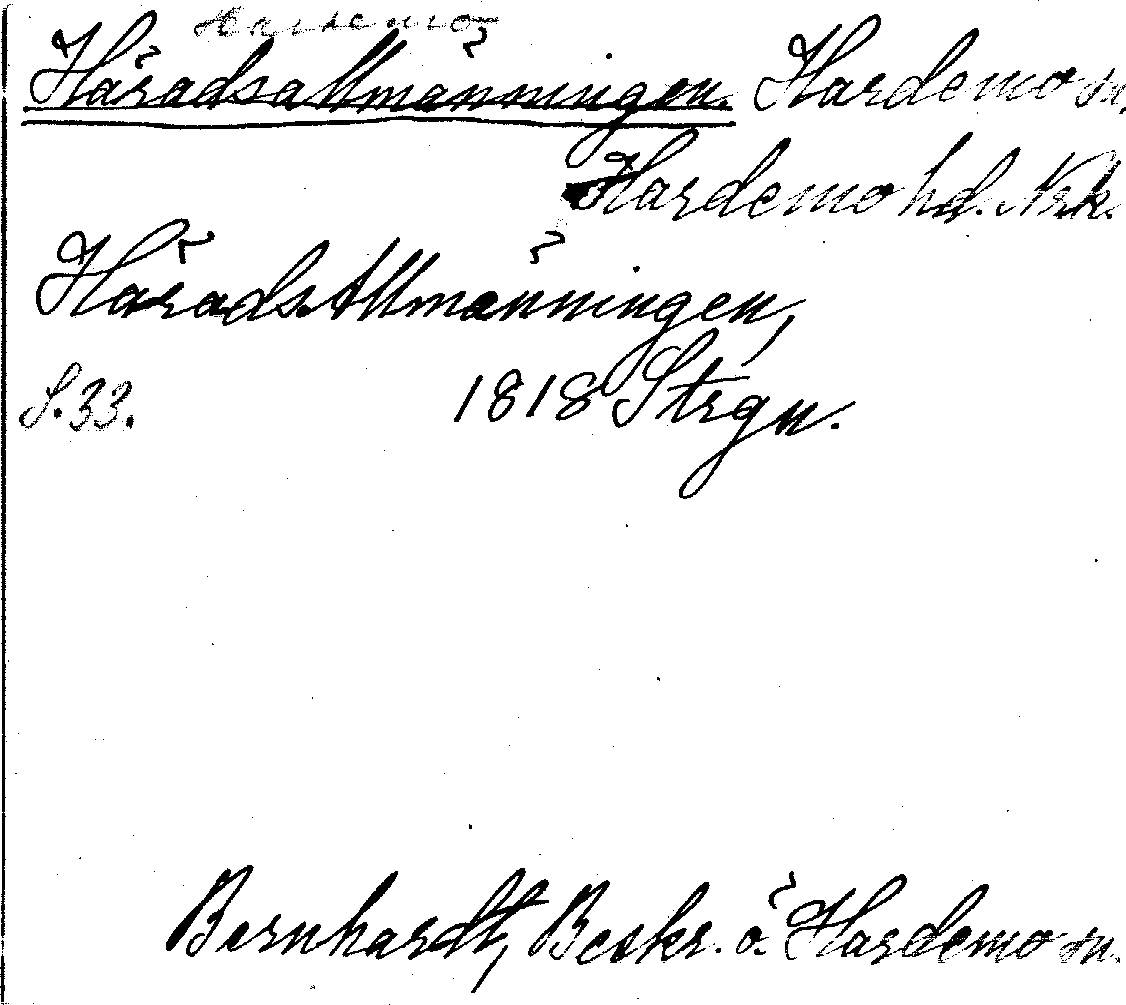 Hardemo
Häradsallmänningen. Hardemo sn.
Hardemo hd. Nrk.
HäradsAllmänningen,
S. 33. 1818 Strgn.
Bernhardt, Beskr. ö. Hardemo sn.